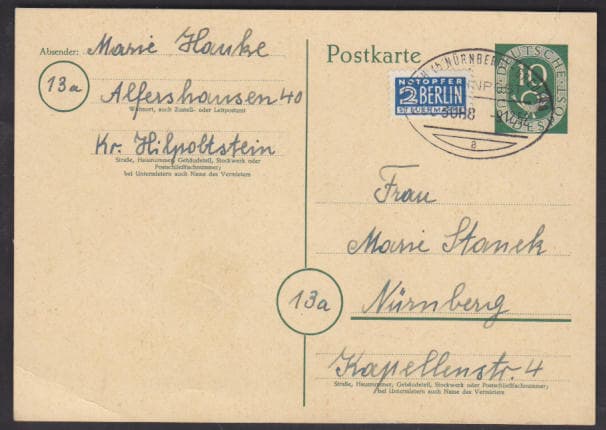 Absender: Marie Hauke
13a
Alfershausen 40
Wohnort, auch Zustell- oder Leitpostamt
Kr. Hilpoltstein
Straße, Hausnummer, Gebäudeteil, Stockwerk oder
Postschließfachnummer;
bei Untermietern auch Name des Vermieters
Postkarte
NOTOPFER
2 BERLIN
STEUERMARKE
NÜRNBERG
BAHNPOST
a
DEUTSCHE BUNDESPOST
10
Frau
Marie Stanek
13a
Nürnberg
Kapellenstr. 4
Straße, Hausnummer, Gebäudeteil, Stockwerk oder Postschließfachnummer;
bei Untermietern auch Name des Vermieters